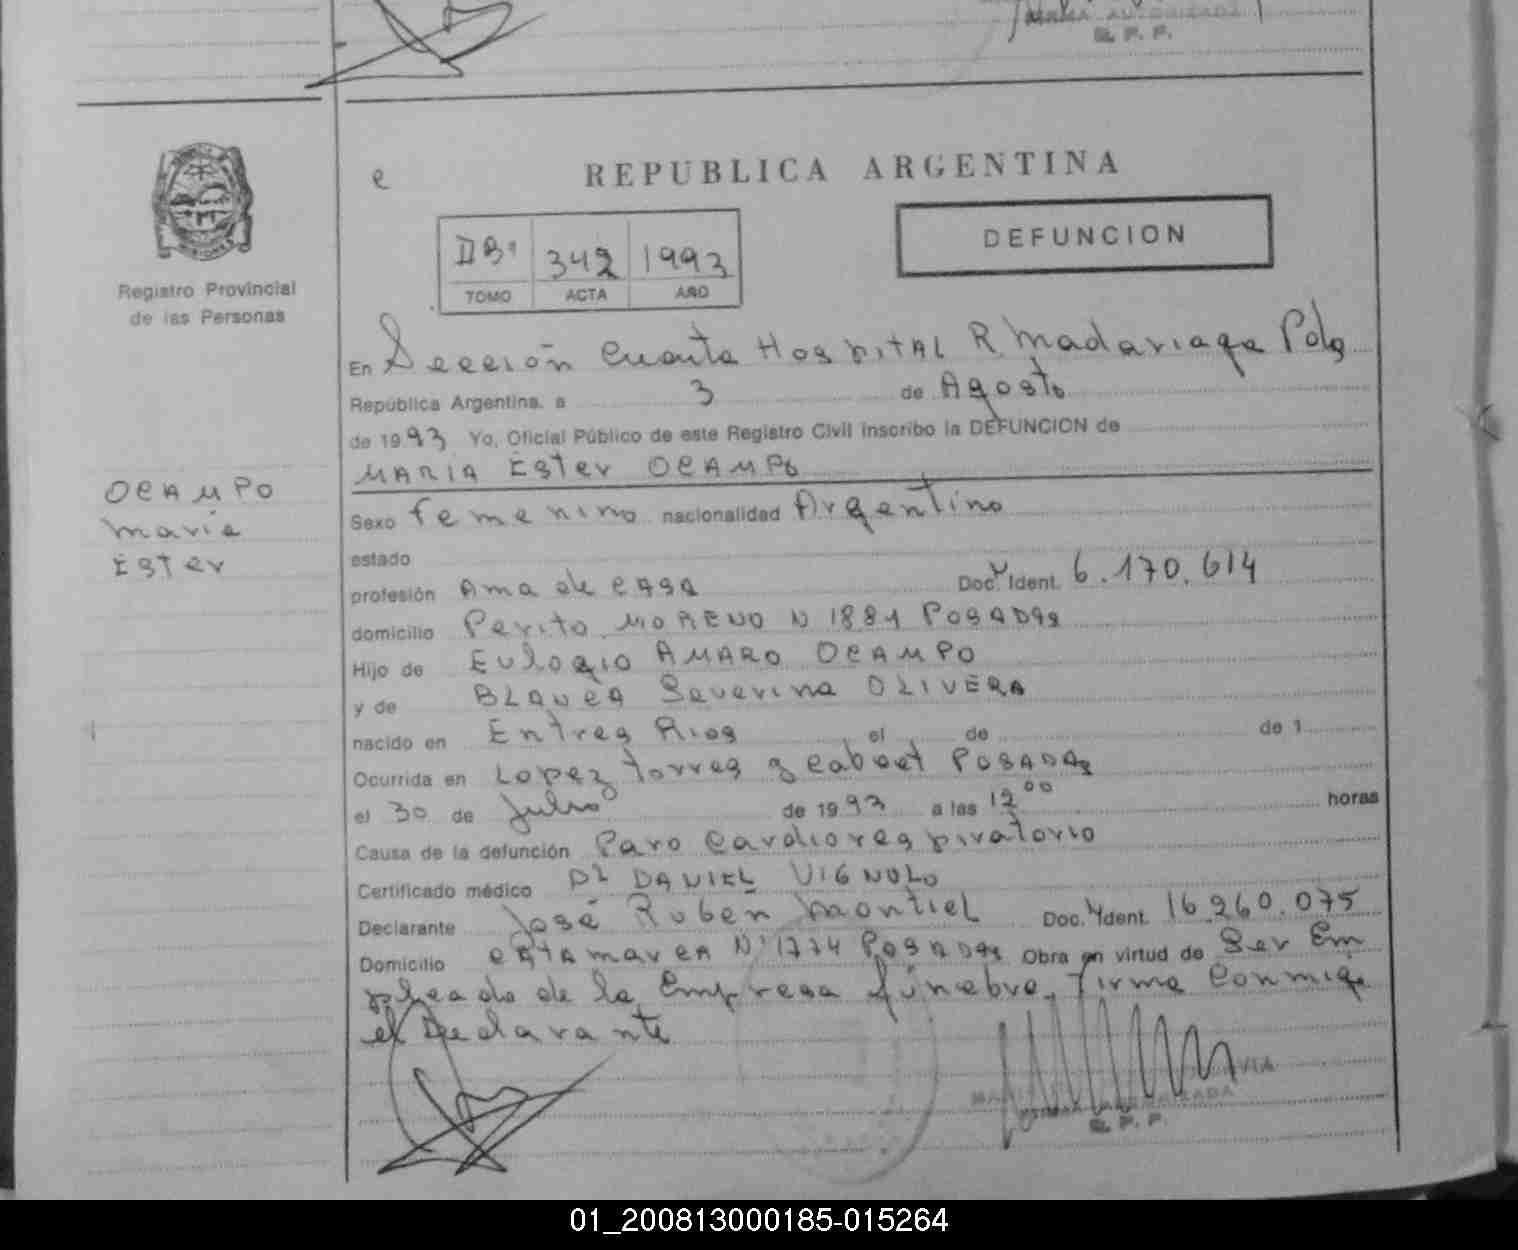 FIRMA AUTORIZADA
R. P. P.
e
REPUBLICA ARGENTINA
DEFUNCION
342 1993
TOMO ACTA AÑO
Registro Provincial
de las Personas
En Sección Cuarta Hospital R. Madariaga Pdas
República Argentina, a 3 de Agosto
de 1993 Yo, Oficial Público de este Registro Civil inscribo la DEFUNCION de
MARIA Ester OCAMPO
OCAMPO
maria
Ester
Sexo femenino nacionalidad Argentino
estado
profesión Ama de CASA Doc. Ident. 6.170.614
domicilio Perito MORENO N 1881 POSADAS
Hijo de Eulogio AMARO OCAMPO
y de BLANCA Severina OLIVERA
nacido en Entres Rios el de de 1
Ocurrida en Lopez torres y cabeet POSADAS
el 30 de Julio de 1993 a las 12 00 horas
Causa de la defunción Paro Cardiorespiratorio
Certificado médico DR DANIEL VIGNOLO
Declarante José Ruben Montiel Doc. Ident. 16.260.075
Domicilio CATAmarCA Nº 1774 POSADAS Obra en virtud de Ser Em
pleado de la Empresa fúnebre, firma conmigo
el Declarante
R. P. P.
01_200813000185-015264